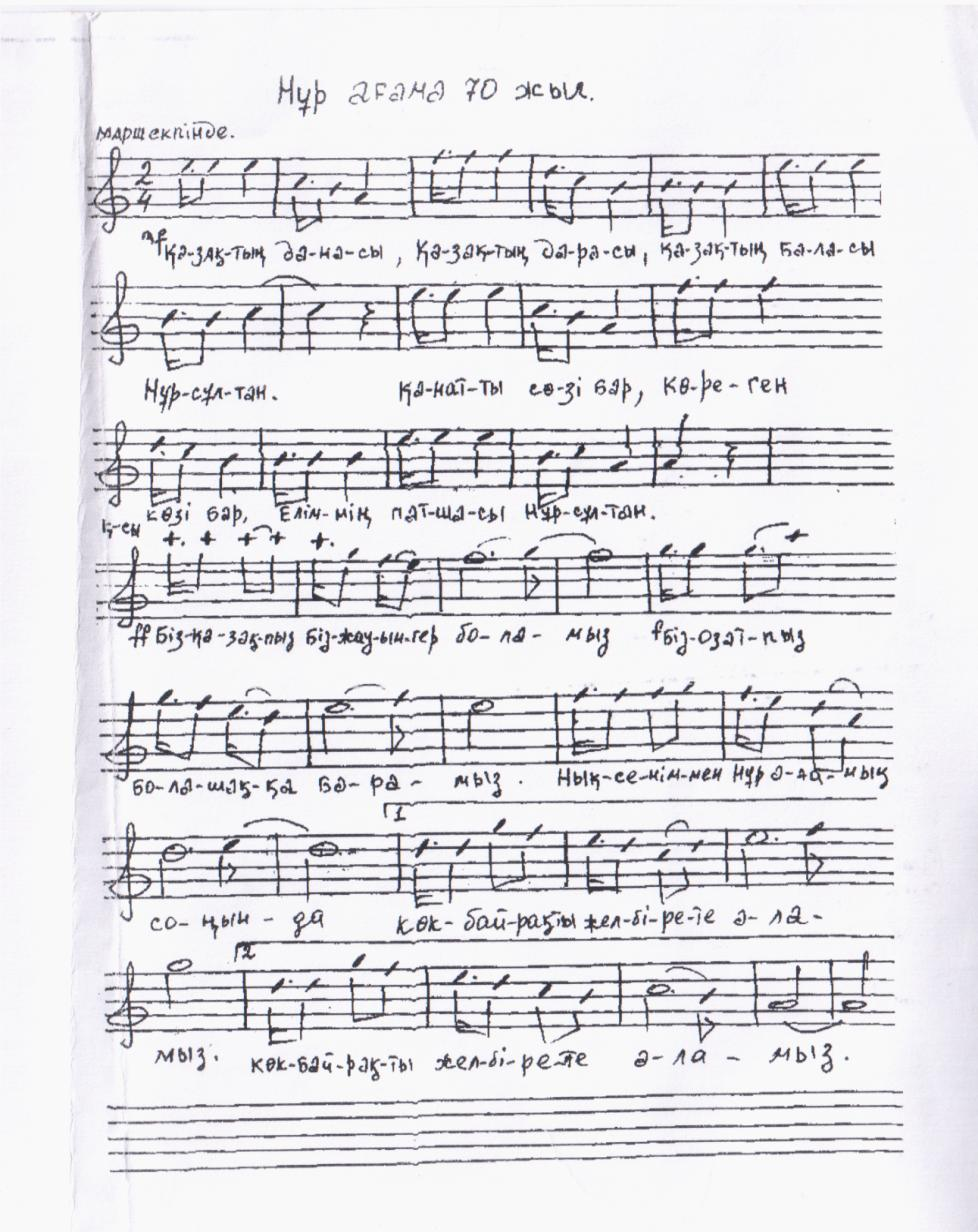 Нұр ағама 70 жыл.
марш екпінде.
2
4
mf Қа-зақ-тың да-на-сы, Қа-зақ-тың да-ра-сы, қа-зақ-тың ба-ла-сы
Нұр-сұл-тан. Қа-нат-ты сө-зі бар, кө-ре-ген
көзі бар, Елім-нің пат-ша-сы Нұр-сұл-тан.
Қ-сы
ff Біз-қа-зақ-пыз біз-жау-ын-гер бо-ла-мыз f Біз-озат-пыз
Бо-ла-шақ-қа Ба-ра-мыз. Нық-се-нім-мен Нұр а-ға-мың
1
со-ңын-да көк-бай-рақты жел-бі-ре-те а-ла-
2
мыз. көк-бай-рақ-ты жел-бі-ре-те а-ла-мыз.